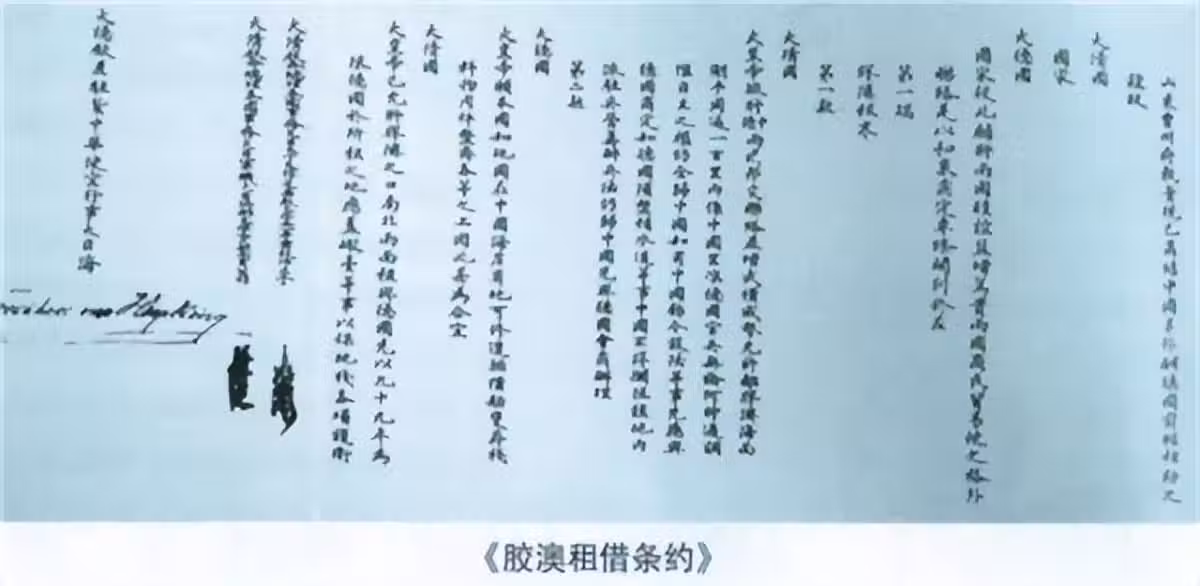 山東曹州府教案現已商結中國另外酬德國前經相助之
誼故
大清國
國家
大德國
國家彼此願將兩國睦誼益增篤實兩國商民貿易使之格外
聯絡是以和衷商定專條開列於左
第一端
膠澳租界
第一款
大清國
大皇帝欲將中兩國邦交聯絡並增武備威勢允許離膠澳海面
潮平周遍一百里內係中國里准德國官兵無論何時過調
惟自主之權仍全歸中國如有中國飭令設法等事先應與
德國商定如德國須整頓水道等事中國不得攔阻該地內
派駐兵營籌辦兵法仍歸中國先與德國會商辦理
第二款
大德國
大皇帝願本國如他國在中國海岸有地可修造排備船隻存棧
料物用件整齊各等之工因之甚為合宜
大清國
大皇帝已允將膠澳之口南北兩面租與德國先以九十九年為
限德國於所租之地應蓋礮臺等事以保地棧各項護衛
大清
大清
大德欽差駐紮中華便宜行事大臣海
《胶澳租借条约》